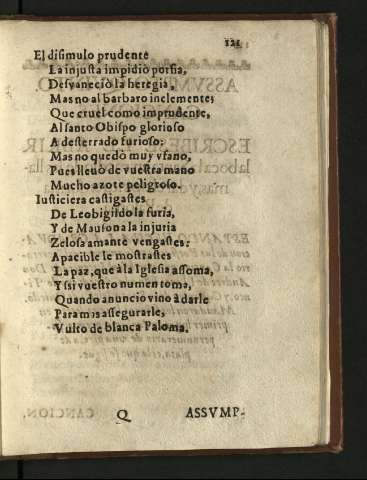 121
El disimulo prudente
La injusta impidiò porfia,
Desvaneciò la heregia,
Mas no al barbaro inclemente;
Que cruel como imprudente,
Al santo Obispo glorioso
A desterrado furioso:
Mas no quedò muy vfano,
Pues lleuò de vuestra mano
Mucho azote peligroso.
Iusticiera castigastes
De Leobigildo la furia,
Y de Mausona la injuria
Zelosa amante vengastes:
Apacible le mostrastes
La paz, que à la Iglesia assoma,
Y si vuestro numen toma,
Quando anuncio vino à darle
Para mas assegurarle,
Vulto de blanca Paloma.
Q ASSVMP-